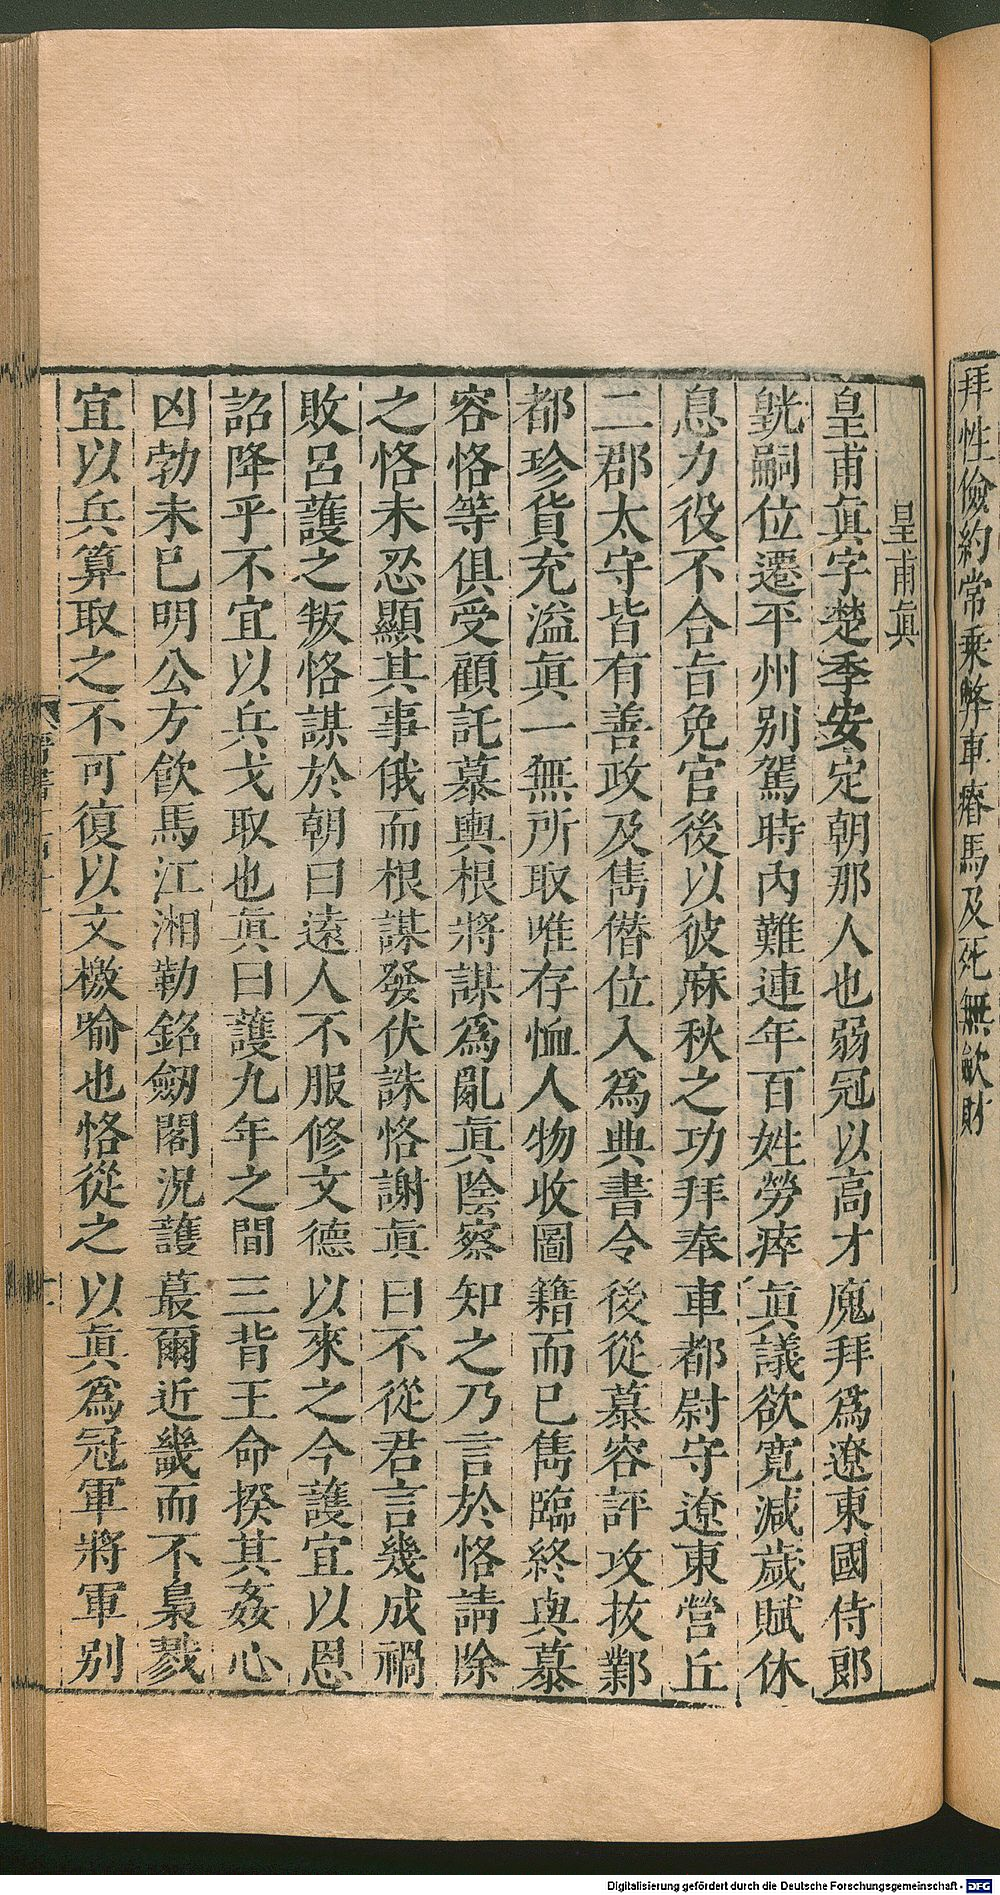 拜性儉約常乗弊車瘠馬及死無斂財
皇甫眞
皇甫眞字楚季安定朝那人也弱冠以高才廆拜爲遼東國侍郞
皝嗣位遷平州别駕時內難連年百姓勞瘁眞議欲寛減歲賦休
息力役不合旨免官後以彼麻秋之功拜奉車都尉守遼東營丘
二郡太守皆有善政及雋僭位入爲典書令後從慕容評攻拔鄴
都珍貨充溢眞一無所取唯存恤人物收圖籍而巳雋臨終與慕
容恪等俱受顧託慕輿根將謀爲亂眞陰察知之乃言於恪請除
之恪未忍顯其事俄而根謀發伏誅恪謝眞曰不從君言幾成禍
敗呂護之叛恪謀於朝曰遠人不服修文德以來之今護宜以恩
詔降乎不宜以兵戈取也眞曰護九年之間三背王命揆其姦心
凶勃未巳明公方飮馬江湘勒銘劒閣況護蕞爾近畿而不梟戮
宜以兵算取之不可復以文檄喻也恪從之以眞爲冠軍將軍别
Digitalisierung gefördert durch die Deutsche Forschungsgemeinschaft - DFG